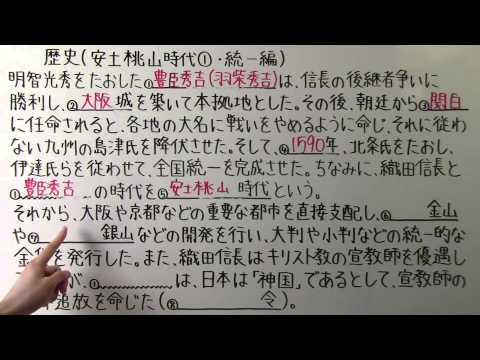 歴史(安土桃山時代①・統一編)
明智光秀をたおした①豊臣秀吉(羽柴秀吉)は、信長の後継者争いに
勝利し、②大阪城を築いて本拠地とした。その後、朝廷から③関白
に任命されると、各地の大名に戦いをやめるように命じ、それに従わ
ない九州の島津氏を降伏させた。そして、④1590年、北条氏をたおし、
伊達氏らを従わせて、全国統一を完成させた。ちなみに、織田信長と
①豊臣秀吉の時代を⑤安土桃山時代という。
それから、大阪や京都などの重要な都市を直接支配し、⑥金山
や⑦銀山などの開発を行い、大判や小判などの統一的な
金貨を発行した。また、織田信長はキリスト教の宣教師を優遇し
が、①は、日本は「神国」であるとして、宣教師の
追放を命じた(⑧令)。